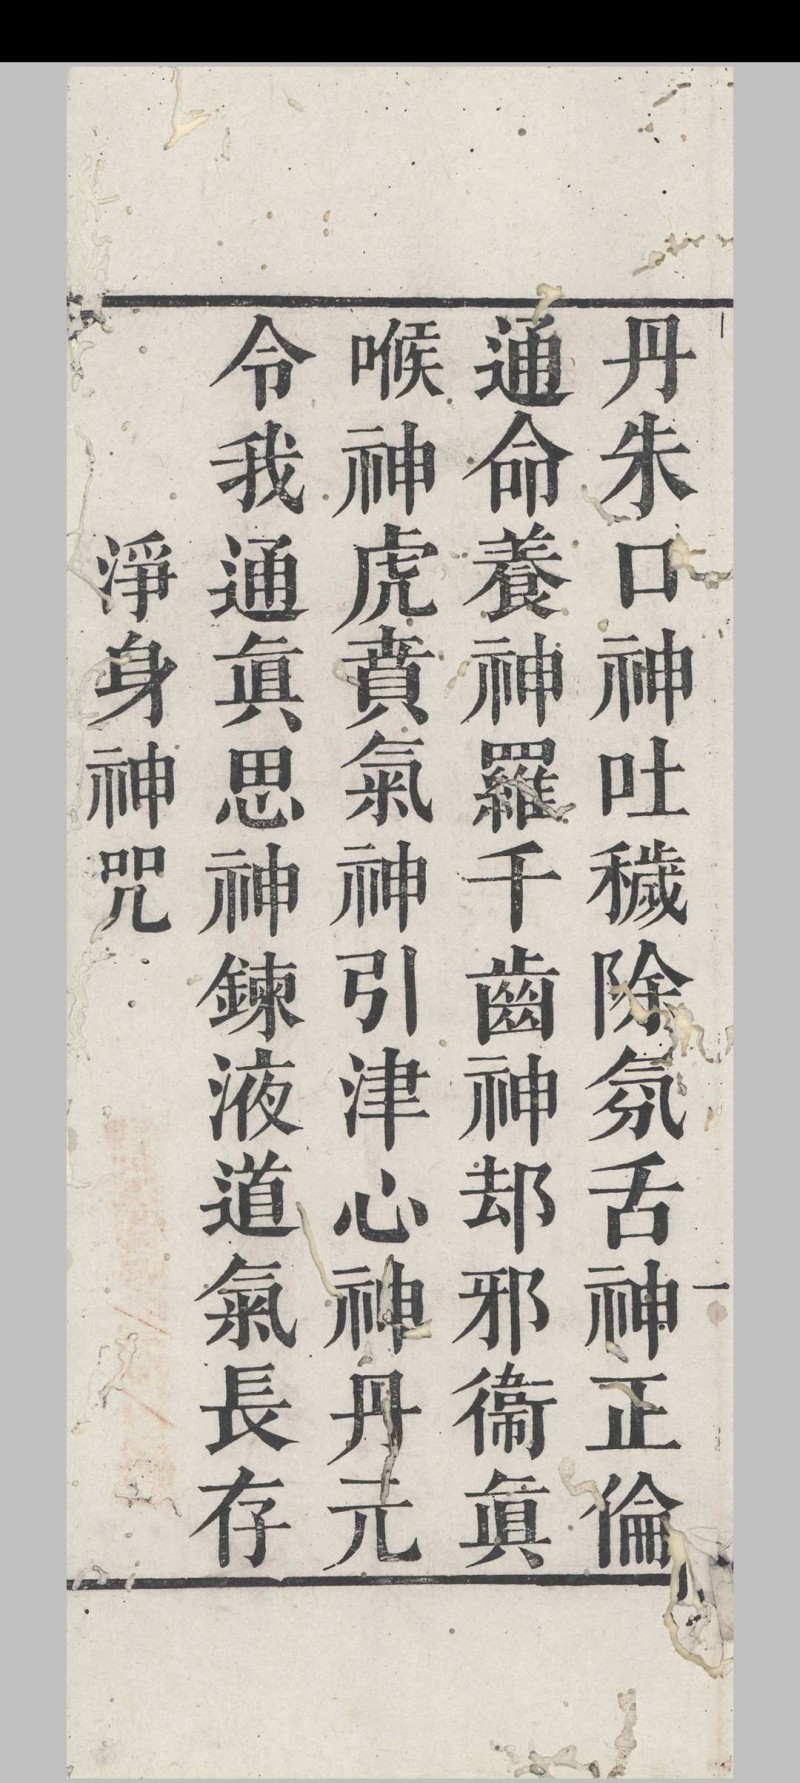 丹朱口神吐穢除氛舌神正倫
通命養神羅千齒神却邪衞眞
喉神虎賁氣神引津心神丹元
令我通眞思神鍊液道氣長存
淨身神咒
一